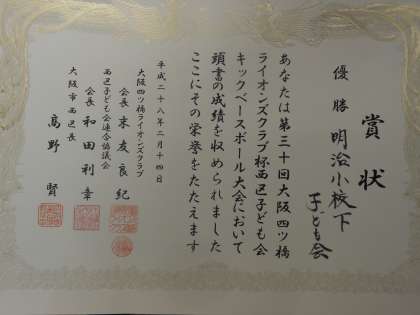 賞状
優勝 明治小校下
子ども会
あなたは第三十回大阪四ツ橋
ライオンズクラブ杯西区子ども会
キックベースボール大会において
頭書の成績を収められました
ここにその栄誉をたたえます
平成二十八年二月十四日
大阪四ツ橋ライオンズクラブ
会長 末友良紀
西区子ども会連合協議会
会長 和田利幸
大阪市西区長
高野賢